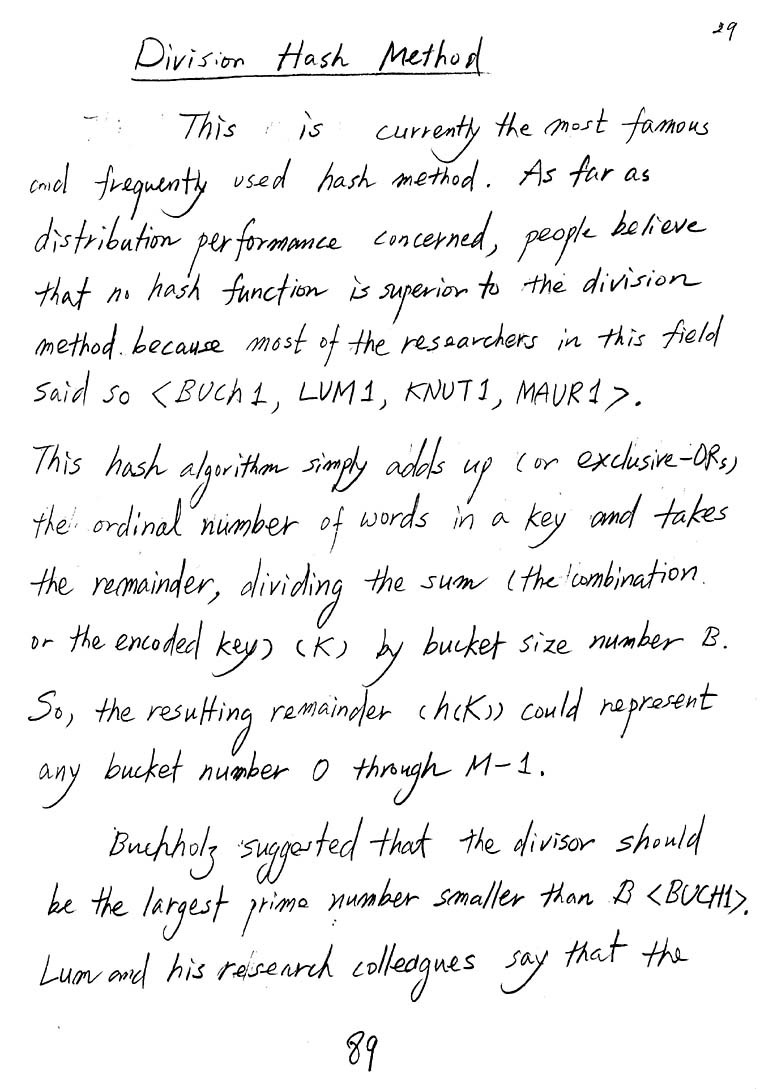 29
Division Hash Method
This is currently the most famous
and frequently used hash method. As far as
distribution performance concerned, people believe
that no hash function is superior to the division
method. because most of the researchers in this field
said so <BUCh1, LUM1, KNUT1, MAUR1>.
This hash algorithm simply adds up (or exclusive-ORs)
the ordinal number of words in a key and takes
the remainder, dividing the sum (the combination
or the encoded key) (K) by bucket size number B.
So, the resulting remainder (h(K)) could represent
any bucket number 0 through M-1.
Buchholz suggested that the divisor should
be the largest prime number smaller than B <BUCH1>.
Lum and his research colleagues say that the
89